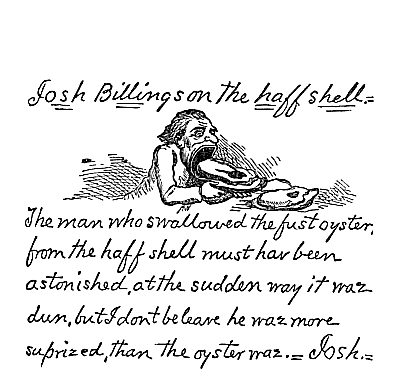 Josh Billings on the haff shell.=
The man who swallowed the fust oyster,
from the haff shell must hav been
astonished, at the sudden way it waz
dun, but I dont beleave he waz more
suprized, than the oyster waz.= Josh.=